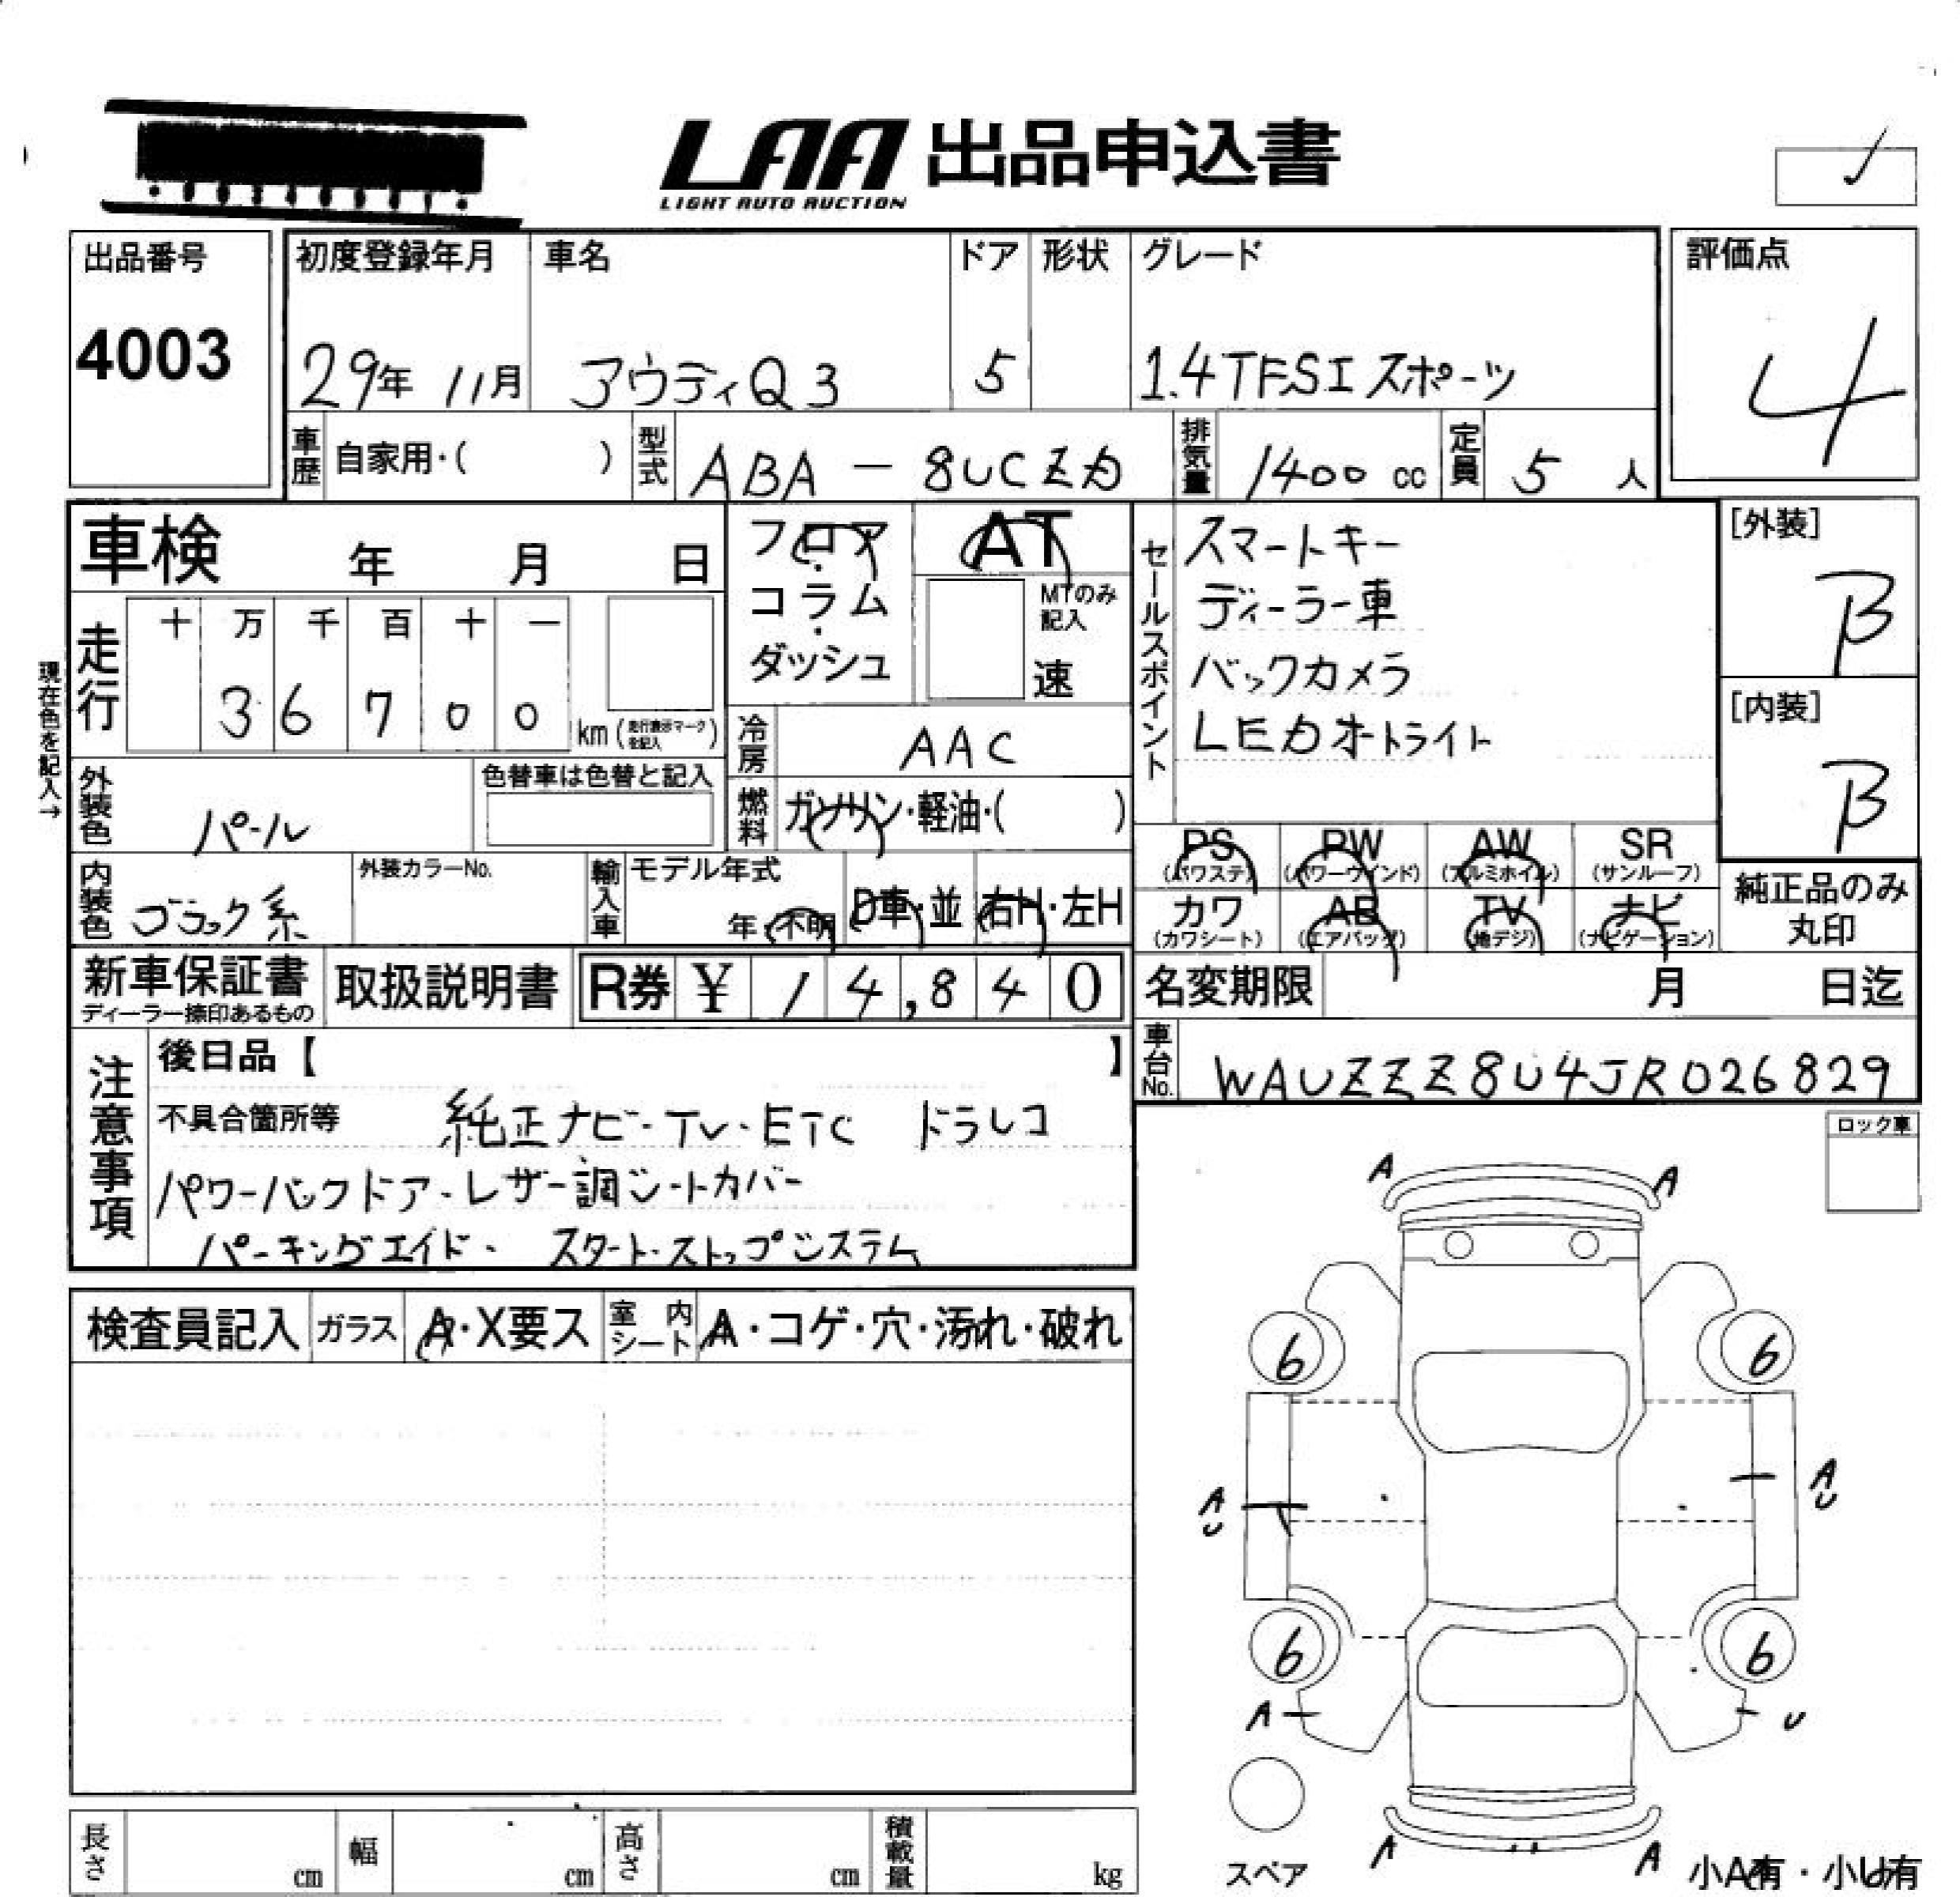 LAA 出品申込書
LIGHT AUTO AUCTION
出品番号
4003
初度登録年月 車名 ドア 形状 グレード
29年 11月 アウディQ3 5 1.4TFSIスポーツ
評価点
4
車歴 自家用・( ) 型式 ABA-8UCZD 排気量 1400 cc 定員 5 人
車検 年 月 日
フロア・コラム・ダッシュ
AT
MTのみ記入
速
セールスポイント
スマートキー
ディーラー車
バックカメラ
LEDオートライト
[外装]
B
[内装]
B
現在色を記入→
走行 十 万 千 百 十 一
3 6 7 0 0 km (走行表示マークを記入)
冷房 AAC
外装色 パール 色替車は色替と記入
燃料 ガソリン・軽油・( )
PS (パワステ) PW (パワーウインド) AW (アルミホイル) SR (サンルーフ)
カワ (カワシート) AB (エアバッグ) TV (地デジ) ナビ (ナビゲーション)
純正品のみ丸印
内装色 ブラック系 外装カラーNo. 輸入車 モデル年式 年・不明 D車・並 右H・左H
新車保証書 ディーラー捺印あるもの 取扱説明書 R券 ¥ 14,840
名変期限 月 日迄
車台No. WAUZZZ8U4JR026829
注意事項
後日品【 】
不具合箇所等 純正ナビ・TV・ETC ドラレコ
パワーバックドア・レザー調シートカバー
パーキングエイド・ スタート・ストップシステム
ロック車
検査員記入 ガラス A・X要ス 室内シート A・コゲ・穴・汚れ・破れ
A A
6 6
A U A U
6 6
A U
A A
スペア
小A有・小U有
長さ cm 幅 cm 高さ cm 積載量 kg